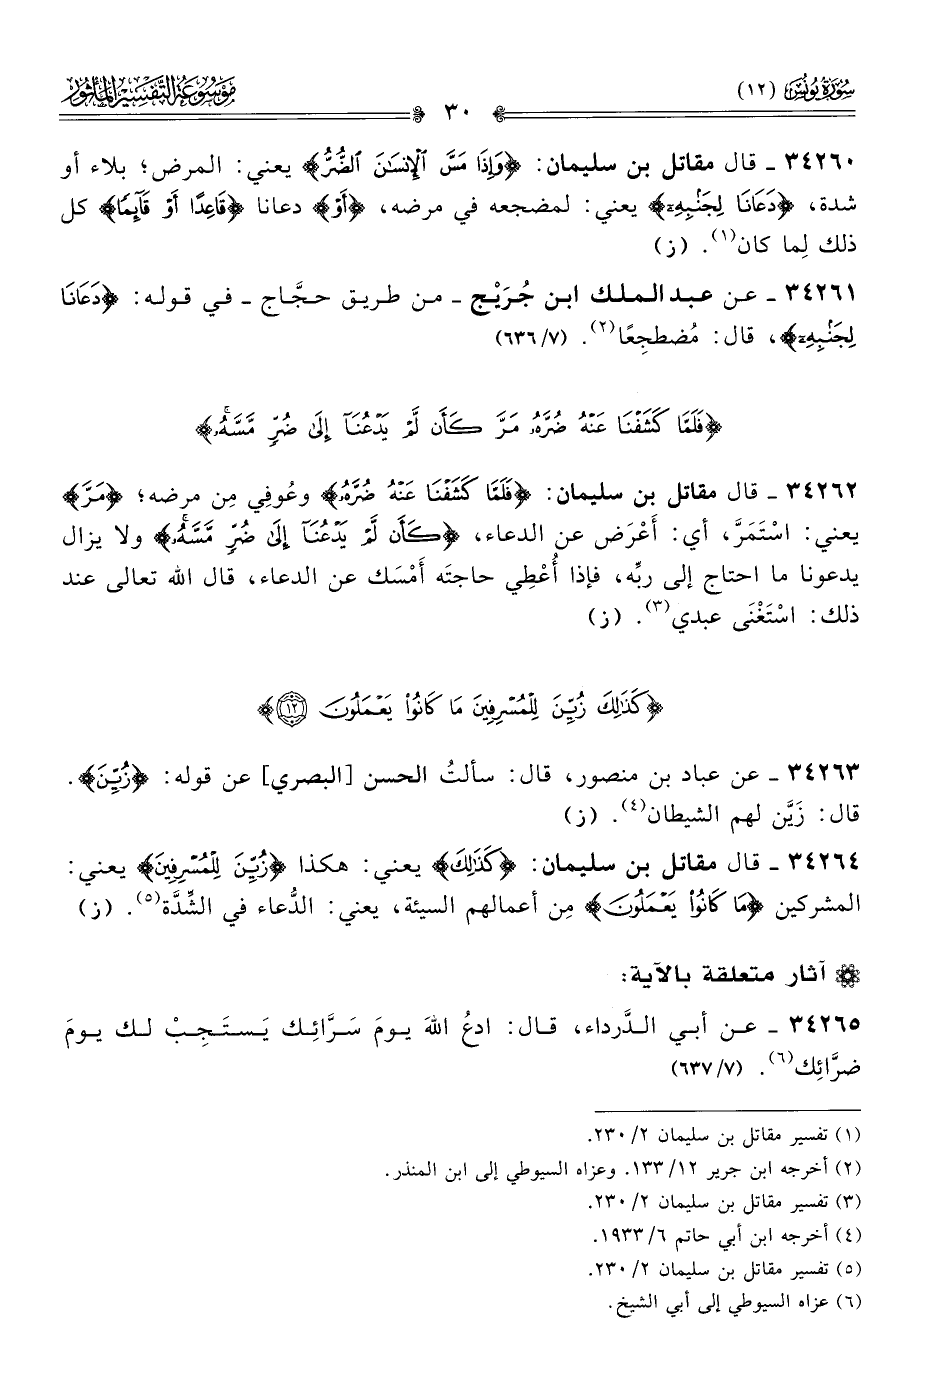 سُورَةُ يُونُسَ (١٢)
٣٠
مَوْسُوعَة التَّفْسِيرِ المَأْثُور
٣٤٢٦٠ ـ قال مقاتل بن سليمان: ﴿وَإِذَا مَسَّ ٱلْإِنسَٰنَ ٱلضُّرُّ﴾ يعني: المرض؛ بلاء أو
شدة، ﴿دَعَانَا لِجَنۢبِهِۦٓ﴾ يعني: لمضجعه في مرضه، ﴿أَوْ﴾ دعانا ﴿قَاعِدًا أَوْ قَآئِمًا﴾ كل
ذلك لِما كان(١). (ز)
٣٤٢٦١ ـ عن عبد الملك ابن جُرَيْج ـ من طريق حجَّاج ـ في قوله: ﴿دَعَانَا
لِجَنۢبِهِۦٓ﴾، قال: مُضطجِعًا(٢). (٦٣٦/٧)
﴿فَلَمَّا كَشَفْنَا عَنْهُ ضُرَّهُۥ مَرَّ كَأَن لَّمْ يَدْعُنَآ إِلَىٰ ضُرٍّ مَّسَّهُۥۚ﴾
٣٤٢٦٢ ـ قال مقاتل بن سليمان: ﴿فَلَمَّا كَشَفْنَا عَنْهُ ضُرَّهُۥ﴾ وعُوفِي مِن مرضه؛ ﴿مَرَّ﴾
يعني: اسْتَمَرَّ، أي: أَعْرَض عن الدعاء، ﴿كَأَن لَّمْ يَدْعُنَآ إِلَىٰ ضُرٍّ مَّسَّهُۥۚ﴾ ولا يزال
يدعونا ما احتاج إلى ربِّه، فإذا أُعْطِي حاجتَه أَمْسَك عن الدعاء، قال الله تعالى عند
ذلك: اسْتَغْنَى عبدي(٣). (ز)
﴿كَذَٰلِكَ زُيِّنَ لِلْمُسْرِفِينَ مَا كَانُوا۟ يَعْمَلُونَ ١٢﴾
٣٤٢٦٣ ـ عن عباد بن منصور، قال: سألتُ الحسن [البصري] عن قوله: ﴿زُيِّنَ﴾.
قال: زَيَّن لهم الشيطان(٤). (ز)
٣٤٢٦٤ ـ قال مقاتل بن سليمان: ﴿كَذَٰلِكَ﴾ يعني: هكذا ﴿زُيِّنَ لِلْمُسْرِفِينَ﴾ يعني:
المشركين ﴿مَا كَانُوا۟ يَعْمَلُونَ﴾ مِن أعمالهم السيئة، يعني: الدُّعاء في الشِّدَّة(٥). (ز)
آثار متعلقة بالآية:
٣٤٢٦٥ ـ عن أبي الدَّرداء، قال: ادعُ اللهَ يومَ سَرَّائِك يَستَجِبْ لك يومَ
ضرَّائِك(٦). (٦٣٧/٧)
(١) تفسير مقاتل بن سليمان ٢٣٠/٢.
(٢) أخرجه ابن جرير ١٣٣/١٢. وعزاه السيوطي إلى ابن المنذر.
(٣) تفسير مقاتل بن سليمان ٢٣٠/٢.
(٤) أخرجه ابن أبي حاتم ١٩٣٣/٦.
(٥) تفسير مقاتل بن سليمان ٢٣٠/٢.
(٦) عزاه السيوطي إلى أبي الشيخ.